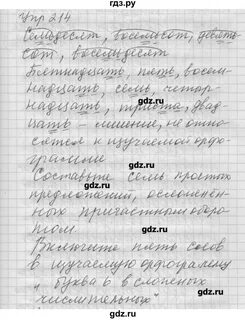 гдз.ру
Упр 214
Семьдесят, восемьсот, девять-
сот, восемьдесят
Пятнадцать, пять, восем-
надцать, семь, четыр-
надцать, триста, двад-
цать - лишние, не отно-
сятся к изучаемой орфо-
грамме
Составьте семь простых
предложений, осложнён-
ных причастным оборо-
том.
Включите пять слов
в изучаемую орфограмму
"буква ь в сложных
числительных"